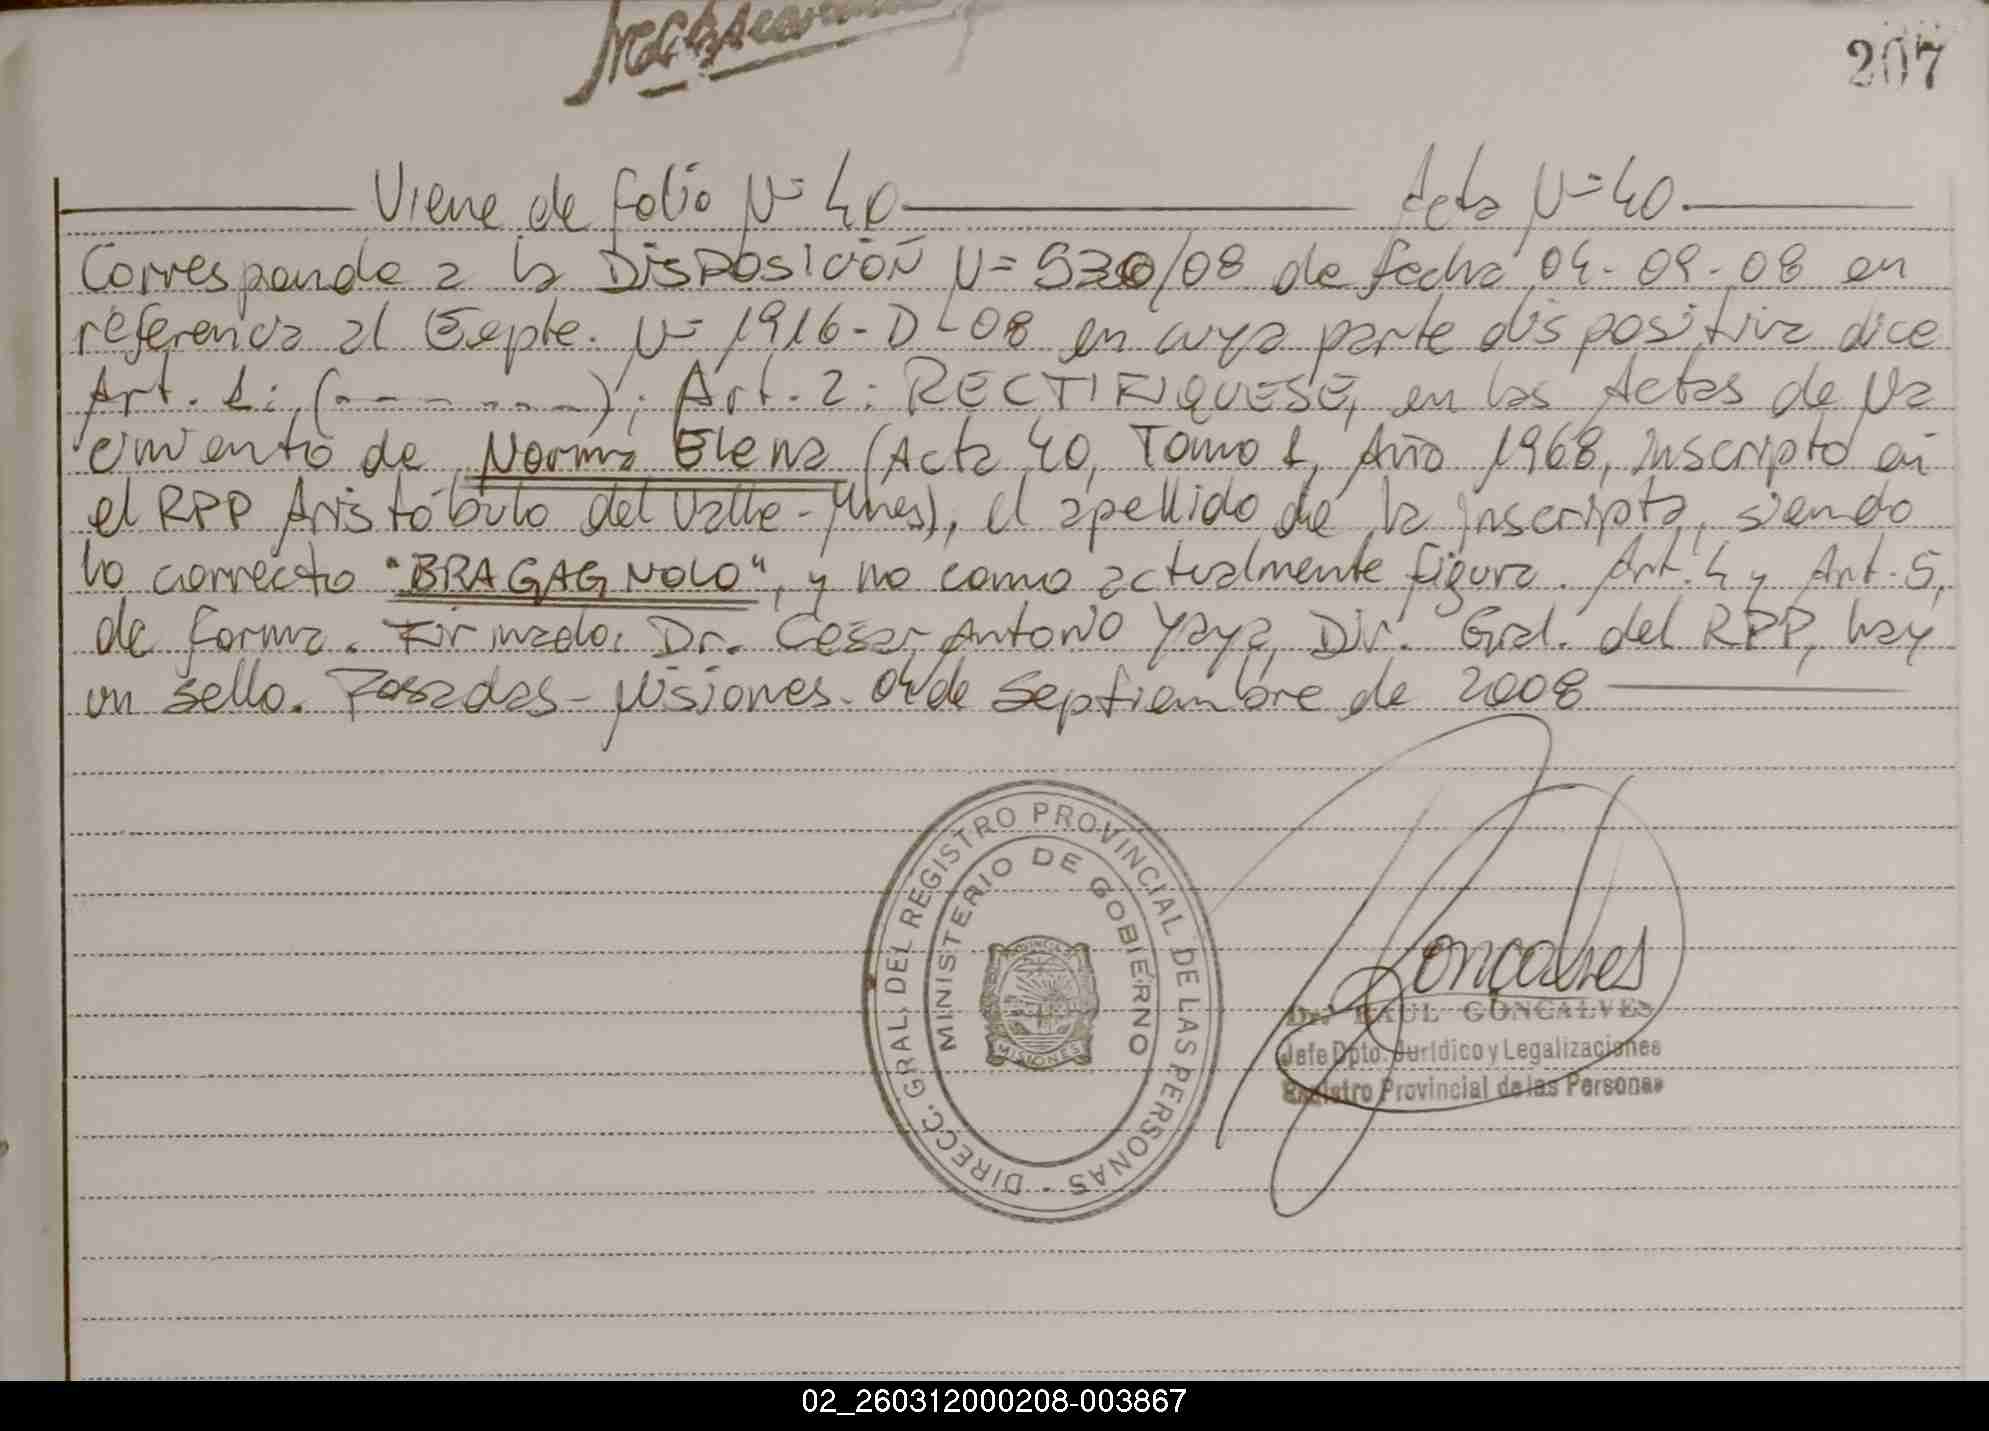 207
Viene de folio Nº 40 Acta Nº 40.
Corresponde a la DISPOSICIÓN Nº 530/08 de fecha 04-09-08 en
referencia al Expte. Nº 1916-D-08 en cuya parte dispositiva dice
Art. 1: (-------); Art. 2: RECTIFIQUESE, en las Actas de Na
cimiento de Norma Elena (Acta 40, Tomo 1, Año 1968, Inscripto en
el RPP Aristóbulo del Valle-Mnes), el apellido de la Inscripta, siendo
lo correcto "BRAGAGNOLO", y no como actualmente figura. Art. 4 y Art. 5,
de forma. Firmado: Dr. Cesar Antonio Yaya, Dir. Gral. del RPP, hay
un sello. Posadas-Misiones. 04 de Septiembre de 2008
DIRECC. GRAL. DEL REGISTRO PROVINCIAL DE LAS PERSONAS
MINISTERIO DE GOBIERNO
PROVINCIA
MISIONES
Goncalves
Dr. RAUL GONCALVES
Jefe Dpto. Jurídico y Legalizaciones
Registro Provincial de las Personas
02_260312000208-003867